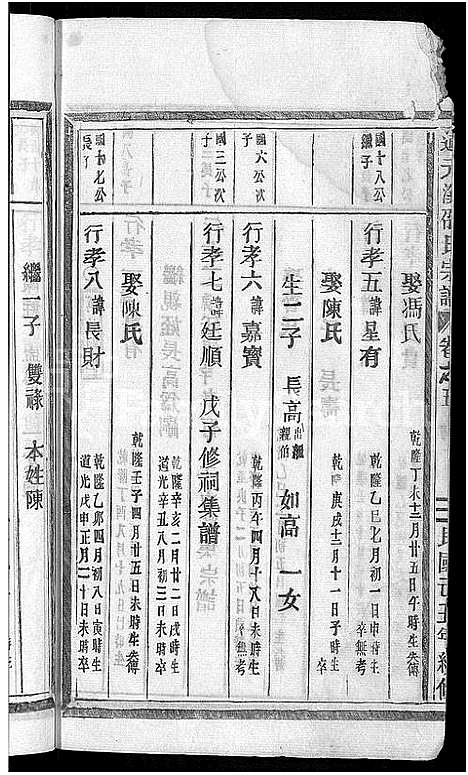 元溪邵氏宗譜 卷之五 民國
娶馮氏 乾隆丁未十二月廿五日午時生失傳
國十八公繼子
行孝五 諱星有 乾隆乙巳七月初一日申時生 卒無考
娶陳氏 乾隆庚戌十二月十一日子時生 卒
生二子 長高 出繼親伯 如高 一女
國六公次子
行孝六 諱嘉寶 乾隆丙午四月十六日未時生 卒無考
國三公次子
行孝七 諱廷順 戊子修祠集譜 乾隆辛亥二月廿二日戌時生 道光辛丑八月初三日未時卒
娶陳氏 乾隆壬子四月廿五日未時生失傳
國十七公長子
行孝八 諱長財 乾隆乙卯四月初八日寅時生 道光戊申正月二十日未時卒
繼一子 雙祿 本姓陳